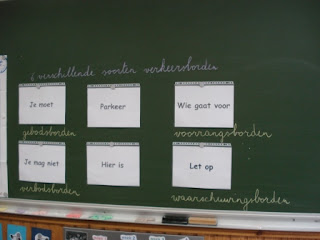 6 verschillende soorten verkeersborden
Je moet
Parkeer
Wie gaat voor
gebodsborden
voorrangsborden
Je mag niet
Hier is
Let op
verbodsborden
waarschuwingsborden